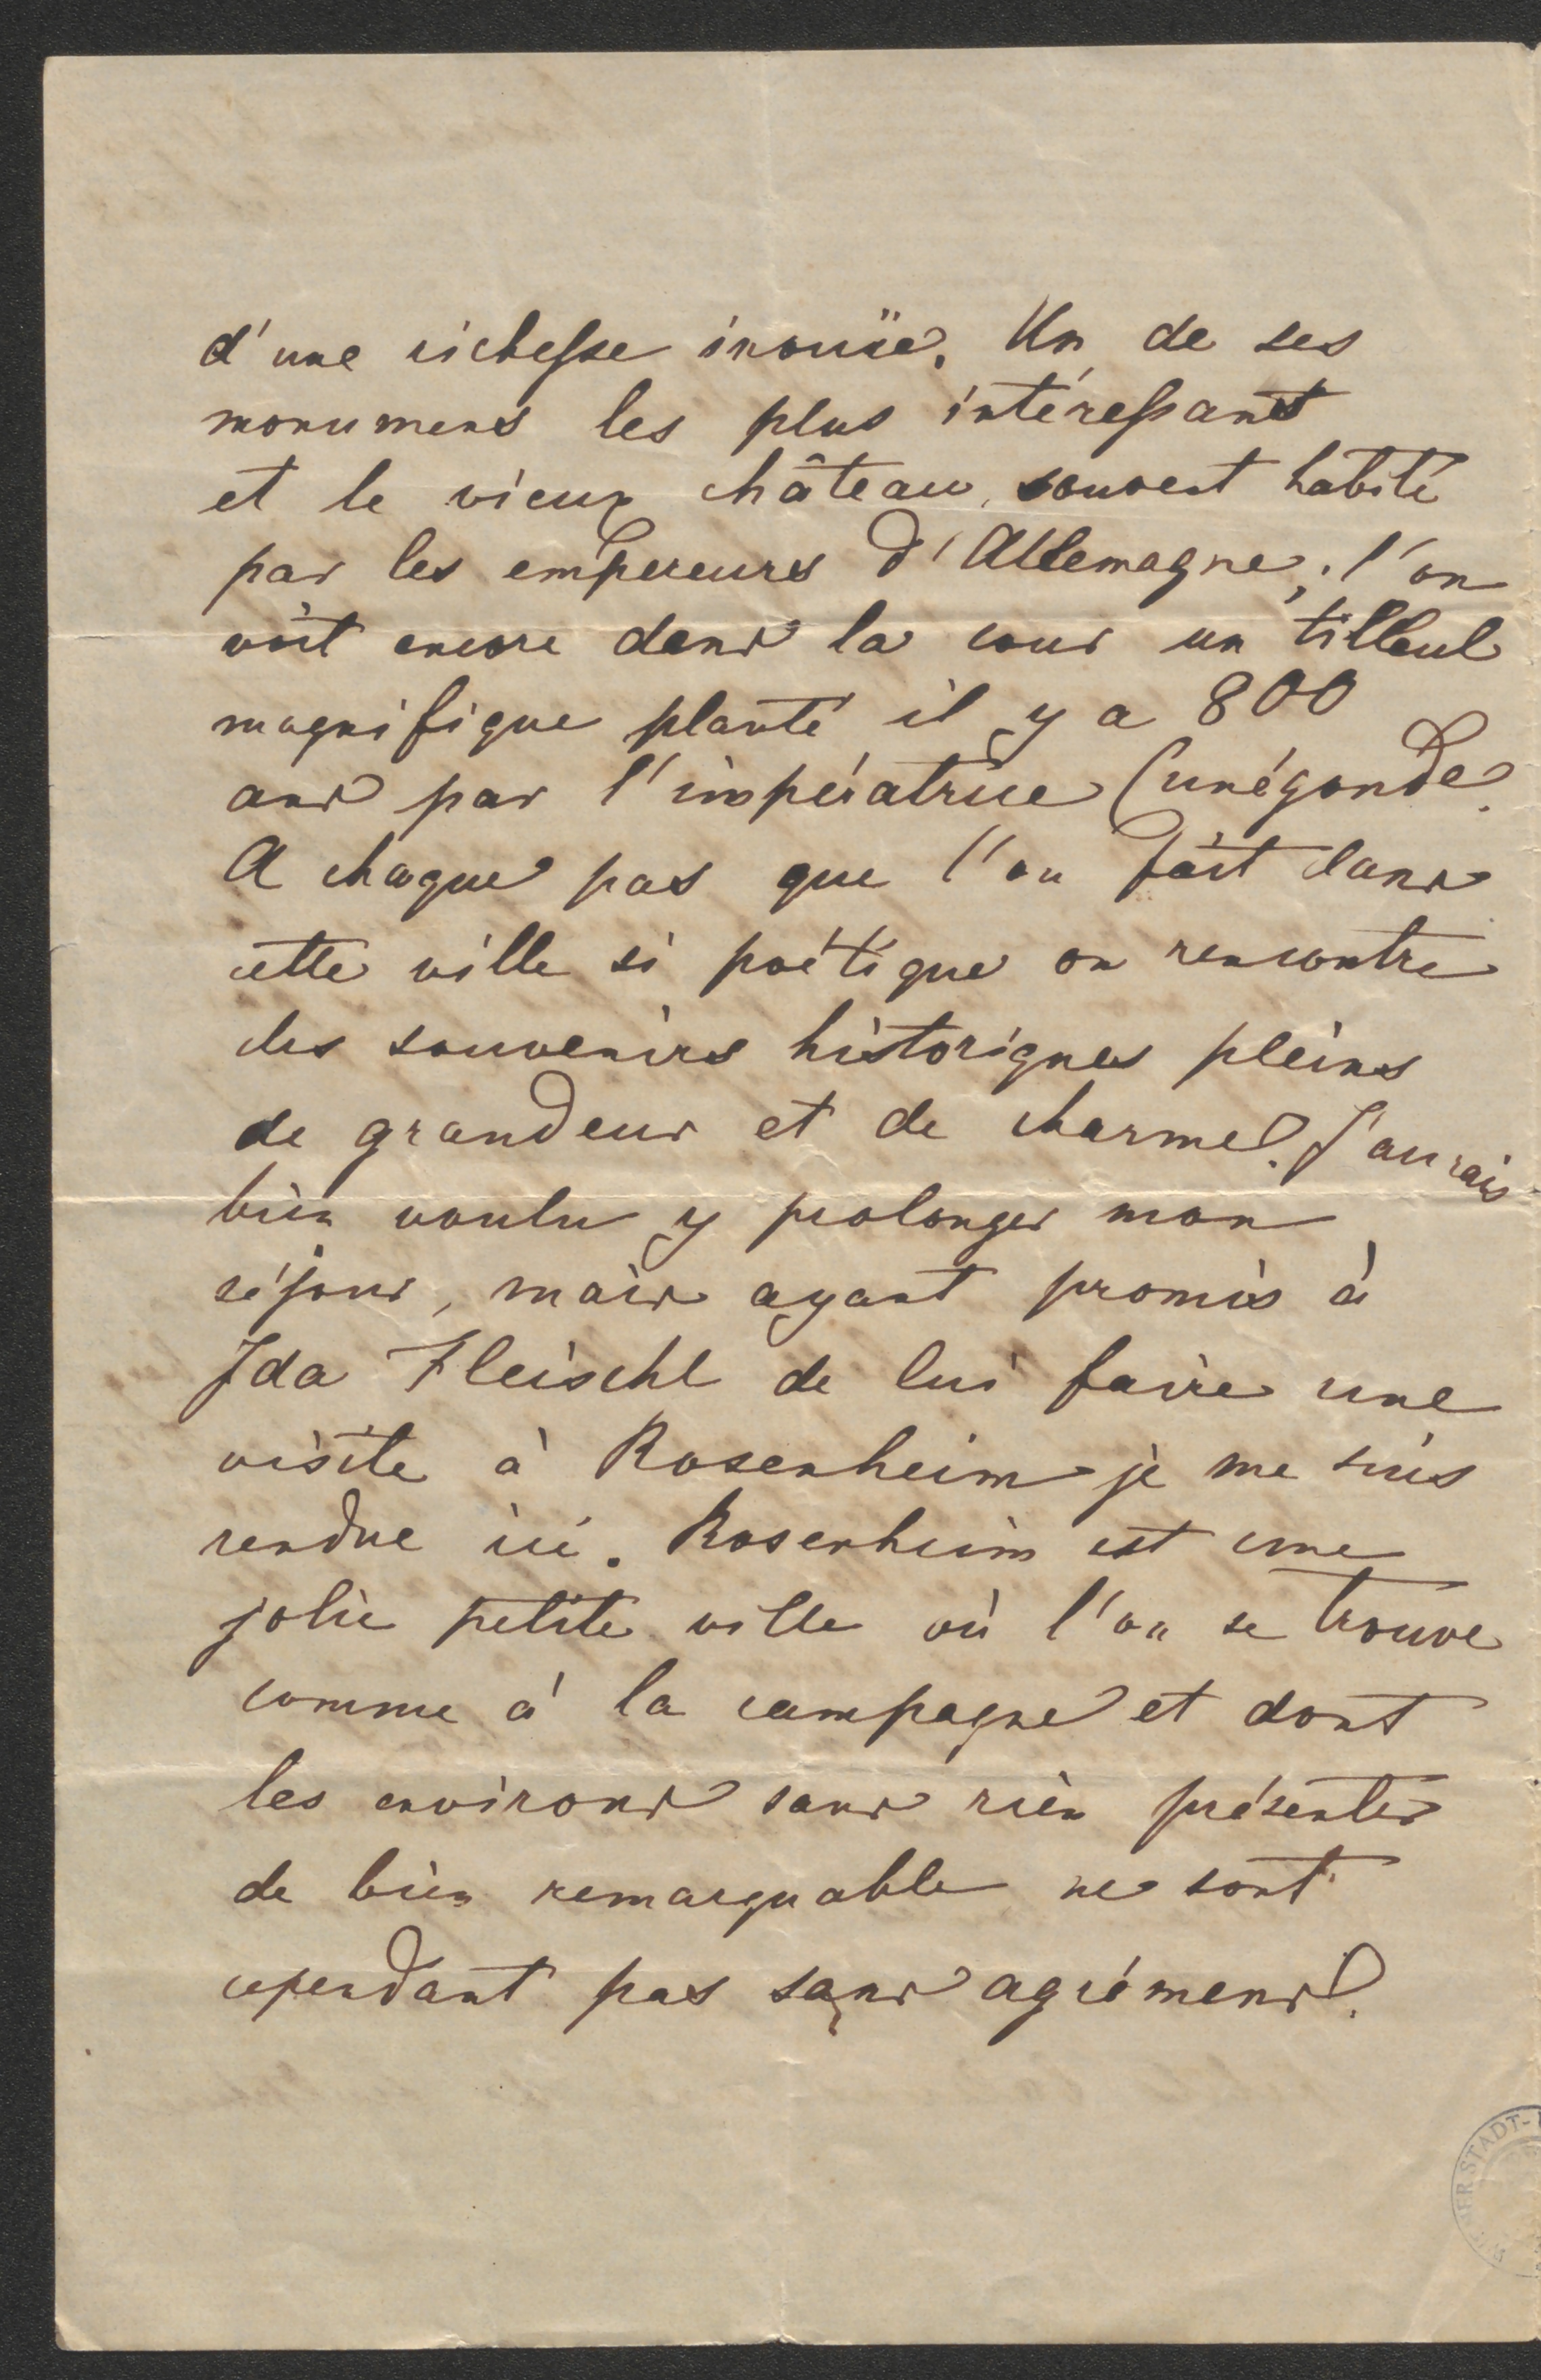 d'une richesse inouïe. Un de ses
monumens les plus intéressants
et le vieux château, souvent habité
par les empereurs d'Allemagne; l'on
voit encore dans la cour un tilleul
magnifique planté il y a 800
ans par l'impératrice Cunégonde.
A chaque pas que l'on fait dans
cette ville si poétique on rencontre
des souvenirs historiques pleins
de grandeur et de charme. J'aurais
bien voulu y prolonger mon
séjour, mais ayant promis à
Ida Fleischl de lui faire une
visite à Rosenheim je me suis
rendue ici. Rosenheim est une
jolie petite ville où l'on se trouve
comme à la campagne et dont
les environs sans rien présenter
de bien remarquable ne sont
cependant pas sans agrémens.
STADT-